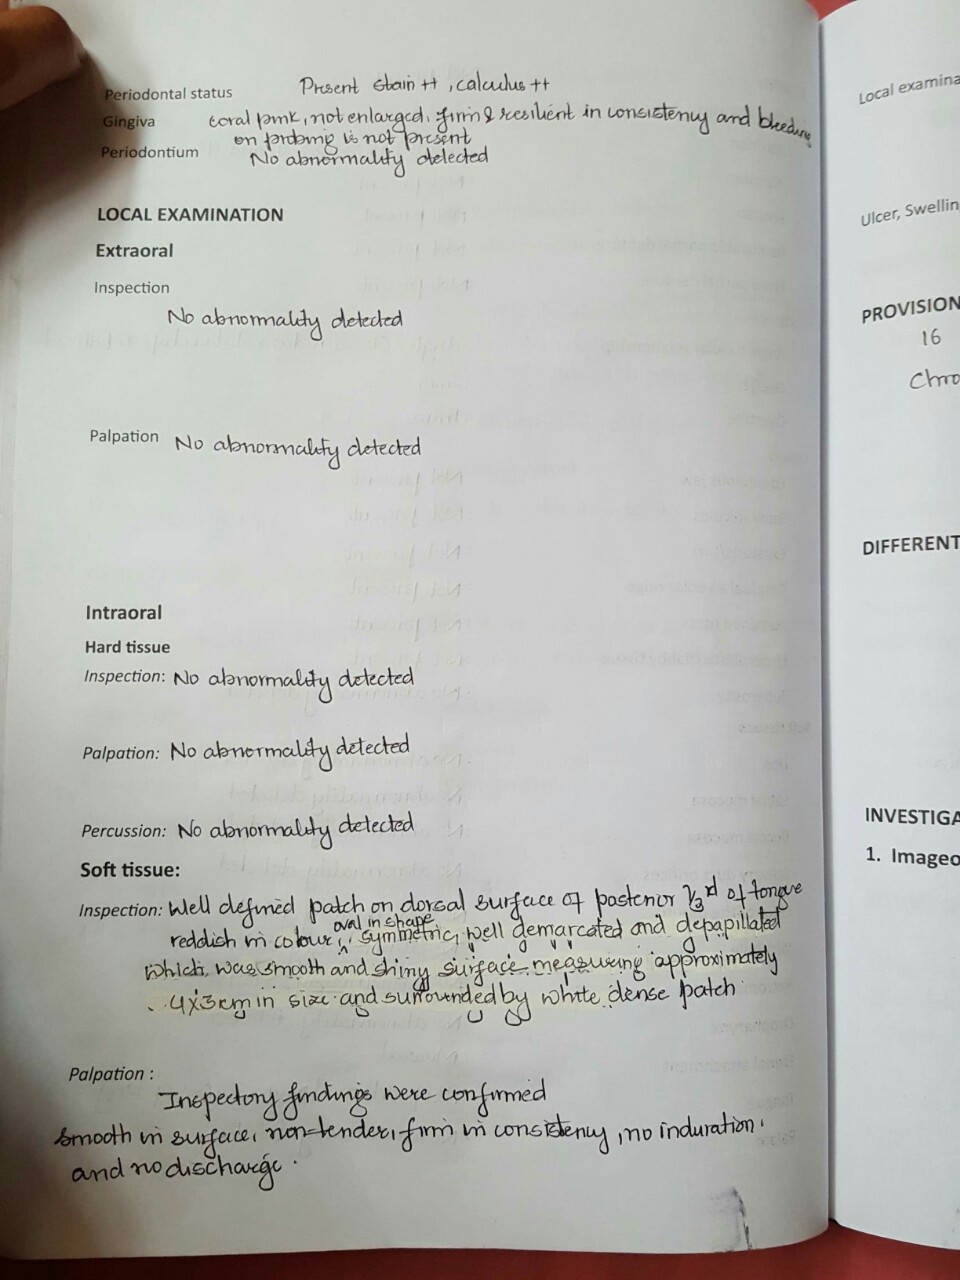 Periodontal status Present stain ++ , calculus ++
Gingiva coral pink, not enlarged, firm & resilient in consistency and bleeding
on probing is not present
Periodontium No abnormality detected
LOCAL EXAMINATION
Extraoral
Inspection
No abnormality detected
Palpation No abnormality detected
Intraoral
Hard tissue
Inspection: No abnormality detected
Palpation: No abnormality detected
Percussion: No abnormality detected
Soft tissue:
Inspection: Well defined patch on dorsal surface of posterior 1/3rd of tongue
reddish in colour, oval in shape, symmetric, well demarcated and depapillated
which was smooth and shiny surface measuring approximately
4x3cm in size and surrounded by white dense patch
Palpation :
Inspectory findings were confirmed
smooth in surface, non-tender, firm in consistency, no induration,
and no discharge.
Local examina
Ulcer, Swellin
PROVISION
16
Chro
DIFFERENT
INVESTIGA
1. Imageo